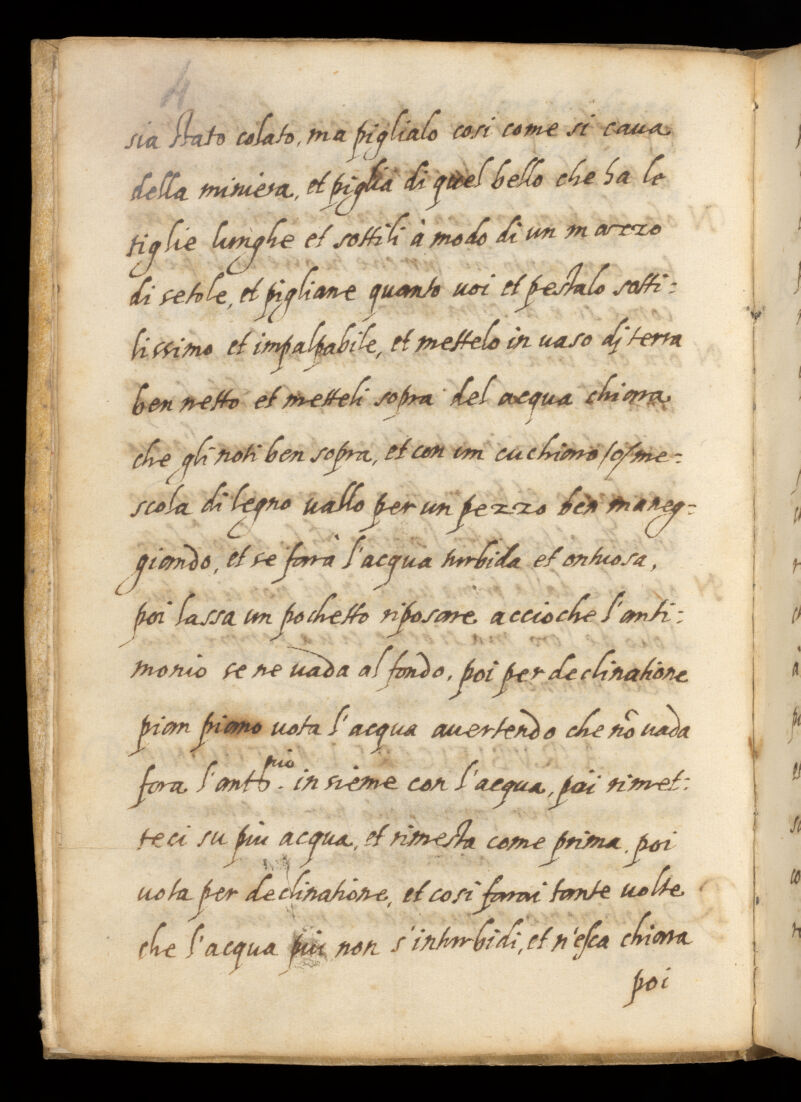 4
sia stato colato, ma piglialo cosi come si caua
della miniera, et piglia di quel bello che ha le
tiglie lunghe et sottili à modo di un mazzo
di setole, et pigliane quanto uoi et pestalo sotti=
lissimo et impalpabile, et mettelo in uaso di terra
ben netto et metteli sopra del acqua chiara
che gli noti ben sopra, et con un cuchiaro /o/ me=
scola di legno uallo per un pezzo ben maneg=
giando, et se farà l'acqua turbida et ontuosa,
poi lassa un pochetto riposare accioche l'anti=
monio se ne uada al fondo, poi per declinatione
pian piano uota l'acqua auertendo che nõ uada
fora l'antᵒ.ⁿⁱᵒ insieme con l'acqua, poi rimet=
teci su piu acqua, et rimesta come prima, poi
uota per declinatione, et cosi farai tante uolte
che l'acqua piu non s'inturbidi, et n'esca chiara
poi